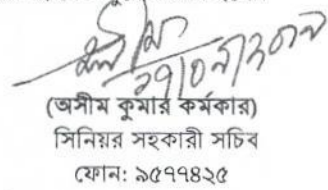 (অসীম কুমার কর্মকার)
সিনিয়র সহকারী সচিব
ফোন: ৯৫৭৭৪২৫